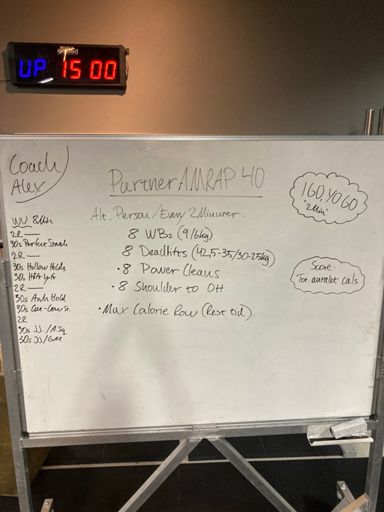 UP 15 00
Coach
Alex
Partner AMRAP 40
IGO, YO GO
"2Min"
Alt. Person / Every 2 Minutes
8 WBs (9/6kg)
8 Deadlifts (42,5-35/30-25kg)
• 8 Power Cleans
• 8 Shoulder to OH
• Max Calorie Row (Rest Bid)
Score
Tot antalet cals
WU 8Min
2R
30s
2R
30s Hollow Holds
30s
2R
30s Arch Hold
30s
2R
30s JJ / A.Sq
30s JJ / GM